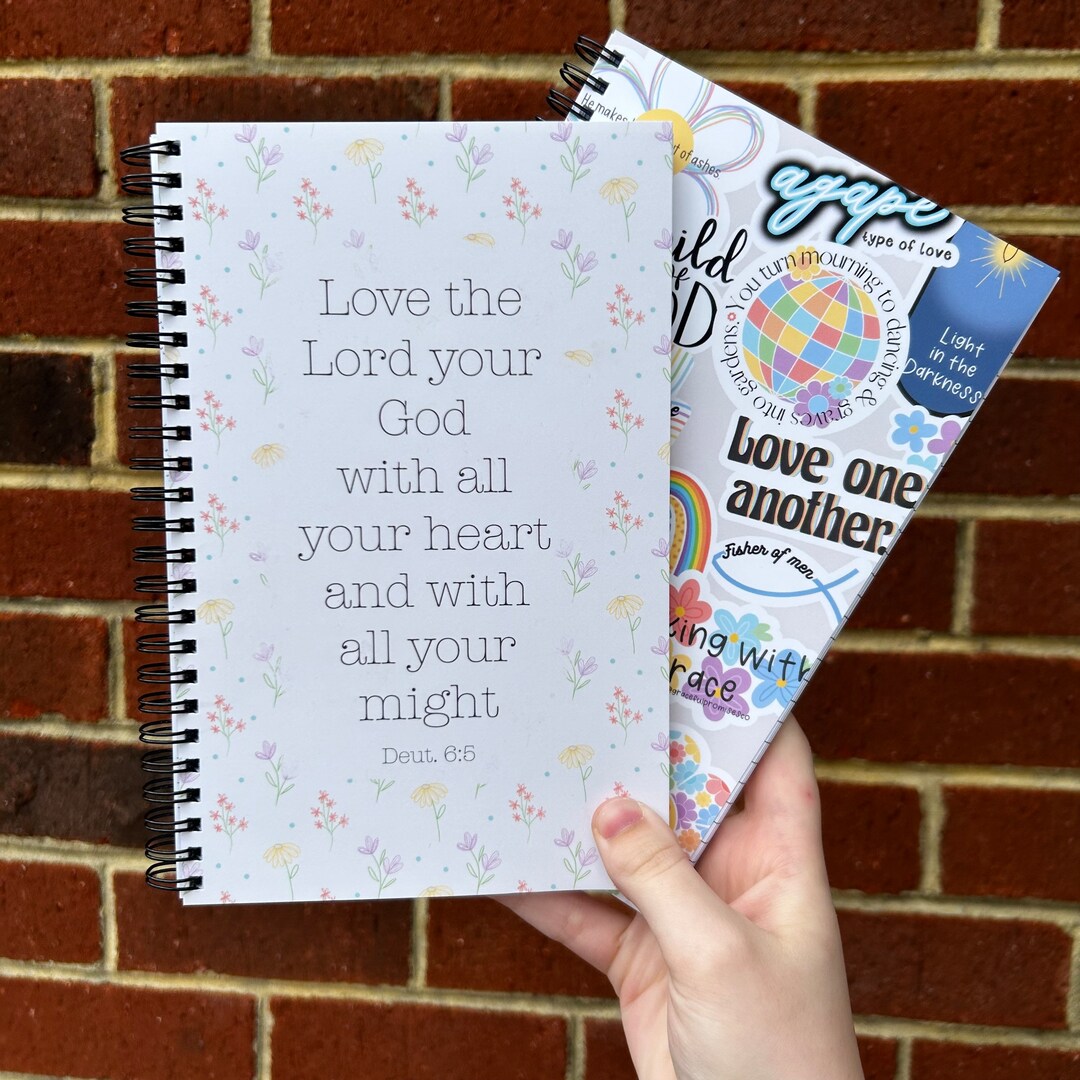 Love the
Lord your
God
with all
your heart
and with
all your
might
Deut. 6:5
He makes
t of ashes
agape
type of love
ild
of
OD
You turn mourning to dancing & graves into gardens.
Light
in the
Darkness
Love one
another.
Fisher of men
king with
race
gracefulpromisesco